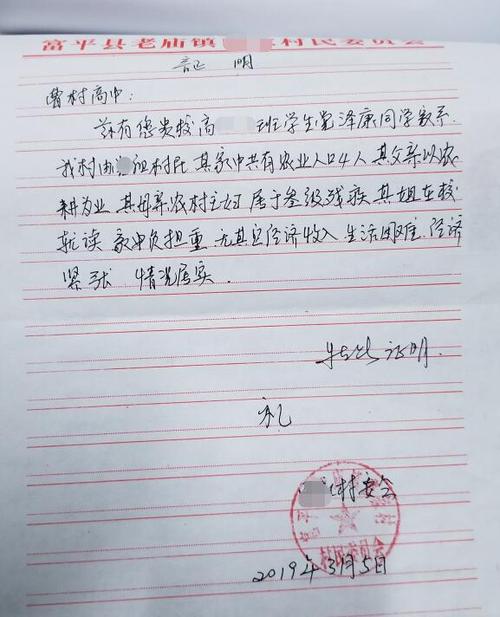 富平县老庙镇 村民委员会
証 明
曹村高中:
兹有您贵校高 班学生党泽康同学家系
我村 组村民 其家中共有农业人口4人 其父亲以农
耕为业 其母亲农村主妇 属于叁级残疾 其姐在校
就读 家中负担重 无其它经济收入 生活困难 经济
紧张 情况属实.
特此证明.
礼
村委会
村民委员会
2019年3月5日